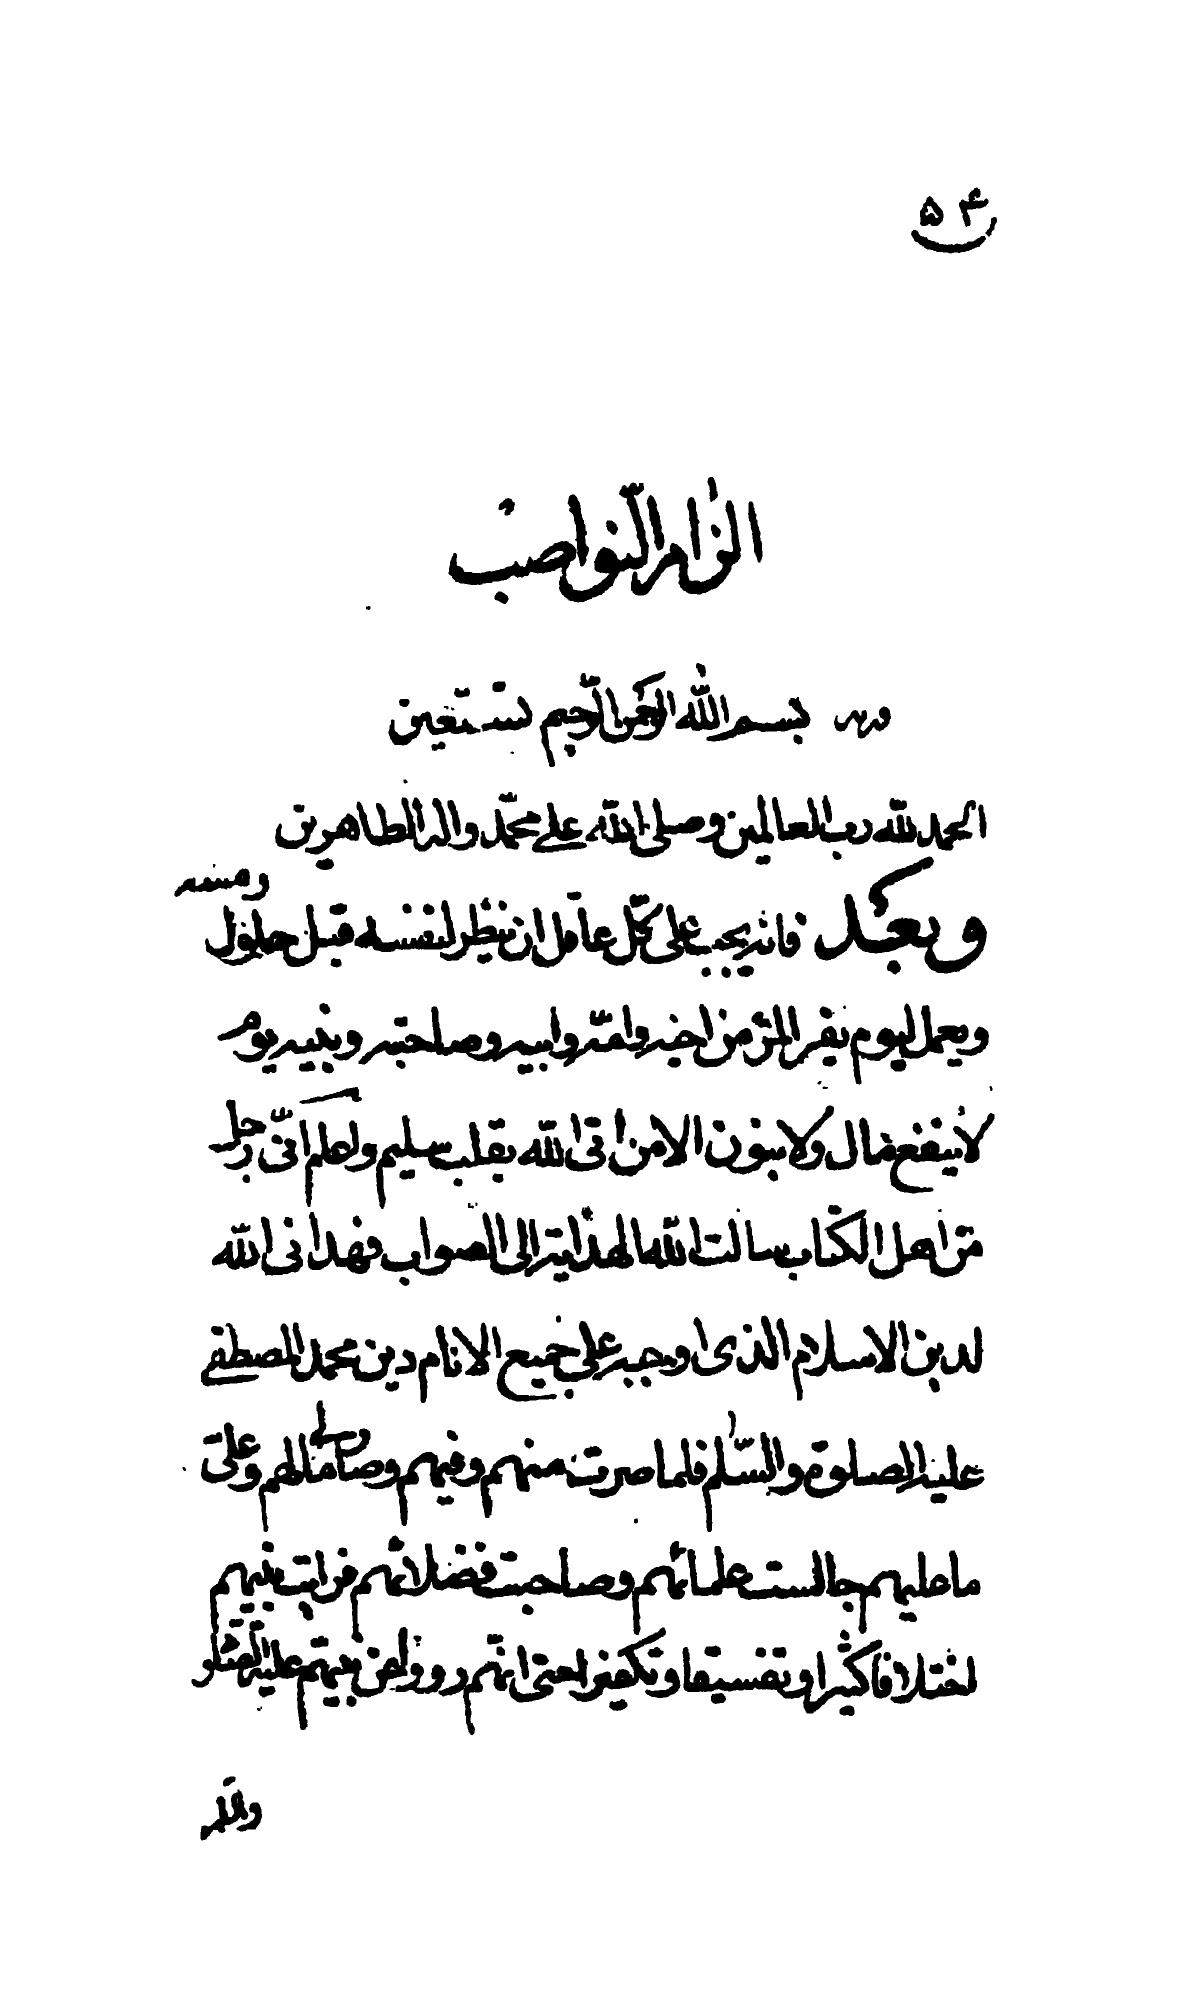 ۵۴
الزام النواصب
وبه بسم الله الرحمن الرحيم نستعين
الحمد لله رب العالمين وصلى الله على محمد واله الطاهرين
وبعد فانه يجب على كل عاقل ان ينظر لنفسه قبل حلول رمسه
ويعمل ليوم يفر المرء من اخيه وامه وابيه وصاحبته وبنيه يوم
لا ينفع مال ولا بنون الا من اتى الله بقلب سليم ولعلم انى رجل
من اهل الكتاب سالت الله الهداية الى الصواب فهدانى الله
لدين الاسلام الذى اوجبه على جميع الانام دين محمد المصطفى
عليه الصلوة والسلم فلما صرت منهم وفيهم وصار مالهم ولى وعلى
ما عليهم جالست علمائهم وصاحبت فضلائهم فرايت بينهم
اختلافا كثيرا وتفسيقا وتكفيرا حتى انهم رووا عن نبيهم عليه الصلو
والسلم